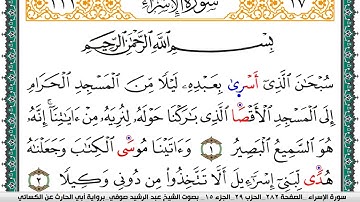 سُورَةُ الإِسْرَاءِ
١٧
بِسْمِ اللَّهِ الرَّحْمَٰنِ الرَّحِيمِ
سُبْحَٰنَ الَّذِي أَسْرِىٰ بِعَبْدِهِۦ لَيْلًا مِّنَ الْمَسْجِدِ الْحَرَامِ
إِلَى الْمَسْجِدِ الْأَقْصَا الَّذِي بَٰرَكْنَا حَوْلَهُۥ لِنُرِيَهُۥ مِنْ ءَايَٰتِنَا إِنَّهُۥ
هُوَ السَّمِيعُ الْبَصِيرُ ١ وَءَاتَيْنَا مُوسَى الْكِتَٰبَ وَجَعَلْنَٰهُ
هُدًى لِّبَنِي إِسْرَٰٓءِيلَ أَلَّا تَتَّخِذُوا مِن دُونِي وَكِيلًا ٢
سورة الإسراء . الصفحة ٢٨٢ . الحزب ٢٩ . الجزء ١٥ . بصوت الشيخ عبد الرشيد صوفي . برواية أبي الحارث عن الكسائي